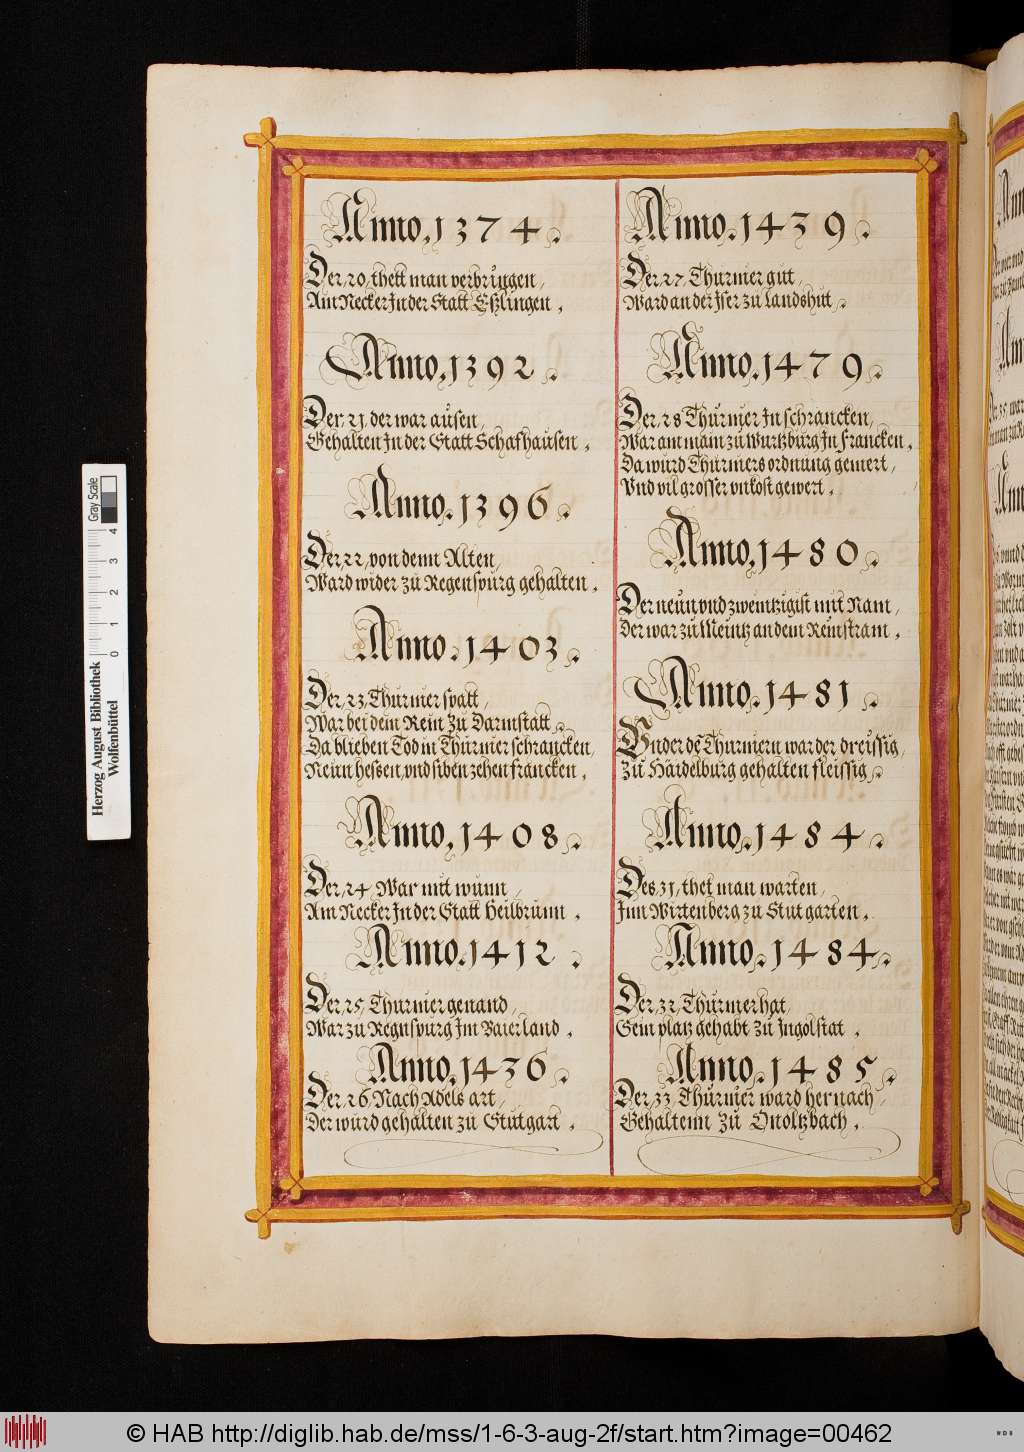 Anno. 1374.
Der, 20, thett man verbringen,
Am Necker In der Statt Eßlingen,
Anno. 1392.
Der, 21, der war ausen,
Gehalten In der Statt Schafhausen,
Anno. 1396.
Der, 22, von denn Alten,
Ward wider zu Regenspurg gehalten,
Anno. 1403.
Der, 23, Thurnier spatt,
War bei dem Rein Zu Darmstatt,
Da blieben Tod in Thurnier schrancken,
Neun heßen, und siben zehen francken,
Anno. 1408.
Der, 24, War mit wunn,
Am Necker In der Statt Heilbrunn,
Anno. 1412.
Der, 25, Thurnier genand,
War zu Regnspurg Im Baierland,
Anno. 1436.
Der, 26, Nach Adels art,
Der wurd gehalten zu Stutgart,
Anno. 1439.
Der, 27, Thurnier gut,
Ward an der Iser zu Landshut,
Anno. 1479.
Der, 28 Thurnier In schrancken,
War am main zu Wurtzburg In francken,
Da wurd Thurniers ordnung gemert,
Vnd vil grosser vnkost gewert,
Anno. 1480.
Der neun vnd zwentzigist mit Nam,
Der war zu Meintz an dem Reinstram,
Anno. 1481.
Vnder dē Thurniern war der dreissig,
Zu Haidelburg gehalten fleissig,
Anno. 1484.
Des, 31, thet man warten,
Inn Wirtenberg zu Stutgarten,
Anno. 1484.
Der, 32, Thurnier hat,
Sein platz gehabt Zu Ingolstat,
Anno. 1485.
Der, 33, Thurnier ward hernach,
Gehaltenn Zu Onoltzbach,
Gray Scale
0 1 2 3 4
Herzog August Bibliothek
Wolfenbüttel
© HAB http://diglib.hab.de/mss/1-6-3-aug-2f/start.htm?image=00462